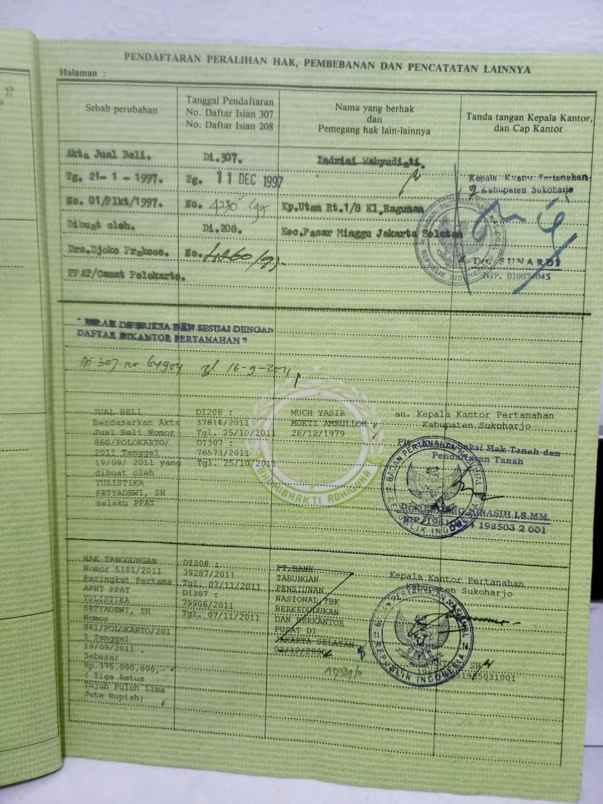 PENDAFTARAN PERALIHAN HAK, PEMBEBANAN DAN PENCATATAN LAINNYA
Halaman :
Sebab perubahan
Tanggal Pendaftaran
No. Daftar Isian 307
No. Daftar Isian 208
Nama yang berhak
dan
Pemegang hak lain-lainnya
Tanda tangan Kepala Kantor,
dan Cap Kantor
Akta Jual Beli.
Tg. 21- 1 - 1997.
No. 01/Plkt/1997.
Dibuat oleh.
Drs.Djoko Prakoso.
PPAT/Camat Polokarto.
Di.307.
Tg. 11 DEC 1997
No.
Di.208.
No.
Indrini Wahyudiati.
Kp.Utan Rt.1/8 Kl.Ragunan
Kec.Pasar Minggu Jakarta Selatan
Kepala Kantor Pertanahan
Kabupaten Sukoharjo
SUNARDI
" TELAH DIPERIKSA DAN SESUAI DENGAN
DAFTAR DIKANTOR PERTANAHAN "
JUAL BELI
Berdasarkan Akta
Jual Beli Nomor
860/POLOKARTO/
2011 Tanggal
19/09/ 2011 yang
dibuat oleh
YULISTIKA
SETYADEWI, SH
selaku PPAT
DI208 :
37818/2011
Tgl. 25/10/2011
DI307 :
76573/2011
Tgl. 25/10/2011
MUCH YASIR
MUKTI AMRULLOH
26/12/1979
an. Kepala Kantor Pertanahan
Kabupaten Sukoharjo
Seksi Hak Tanah dan
Pendaftaran Tanah
BADAN PERTANAHAN NASIONAL
REPUBLIK INDONESIA
198503 2 001
HAK TANGGUNGAN
Nomor 5101/2011
Peringkat Pertama
APHT PPAT
YULISTIKA
SETYADEWI, SH
Nomor
861/POLOKARTO/201
1 Tanggal
19/09/2011 .
Sebesar
Rp.375.000.000,-
( Tiga Ratus
Tujuh Puluh Lima
Juta Rupiah)
DI208 :
39287/2011
Tgl. 07/11/2011
DI307 :
Tgl. 07/11/2011
PT.BANK
TABUNGAN
PENSIUNAN
NASIONAL TBK
BERKEDUDUKAN
DAN BERKANTOR
PUSAT DI
JAKARTA SELATAN
Kepala Kantor Pertanahan
Kabupaten Sukoharjo
REPUBLIK INDONESIA